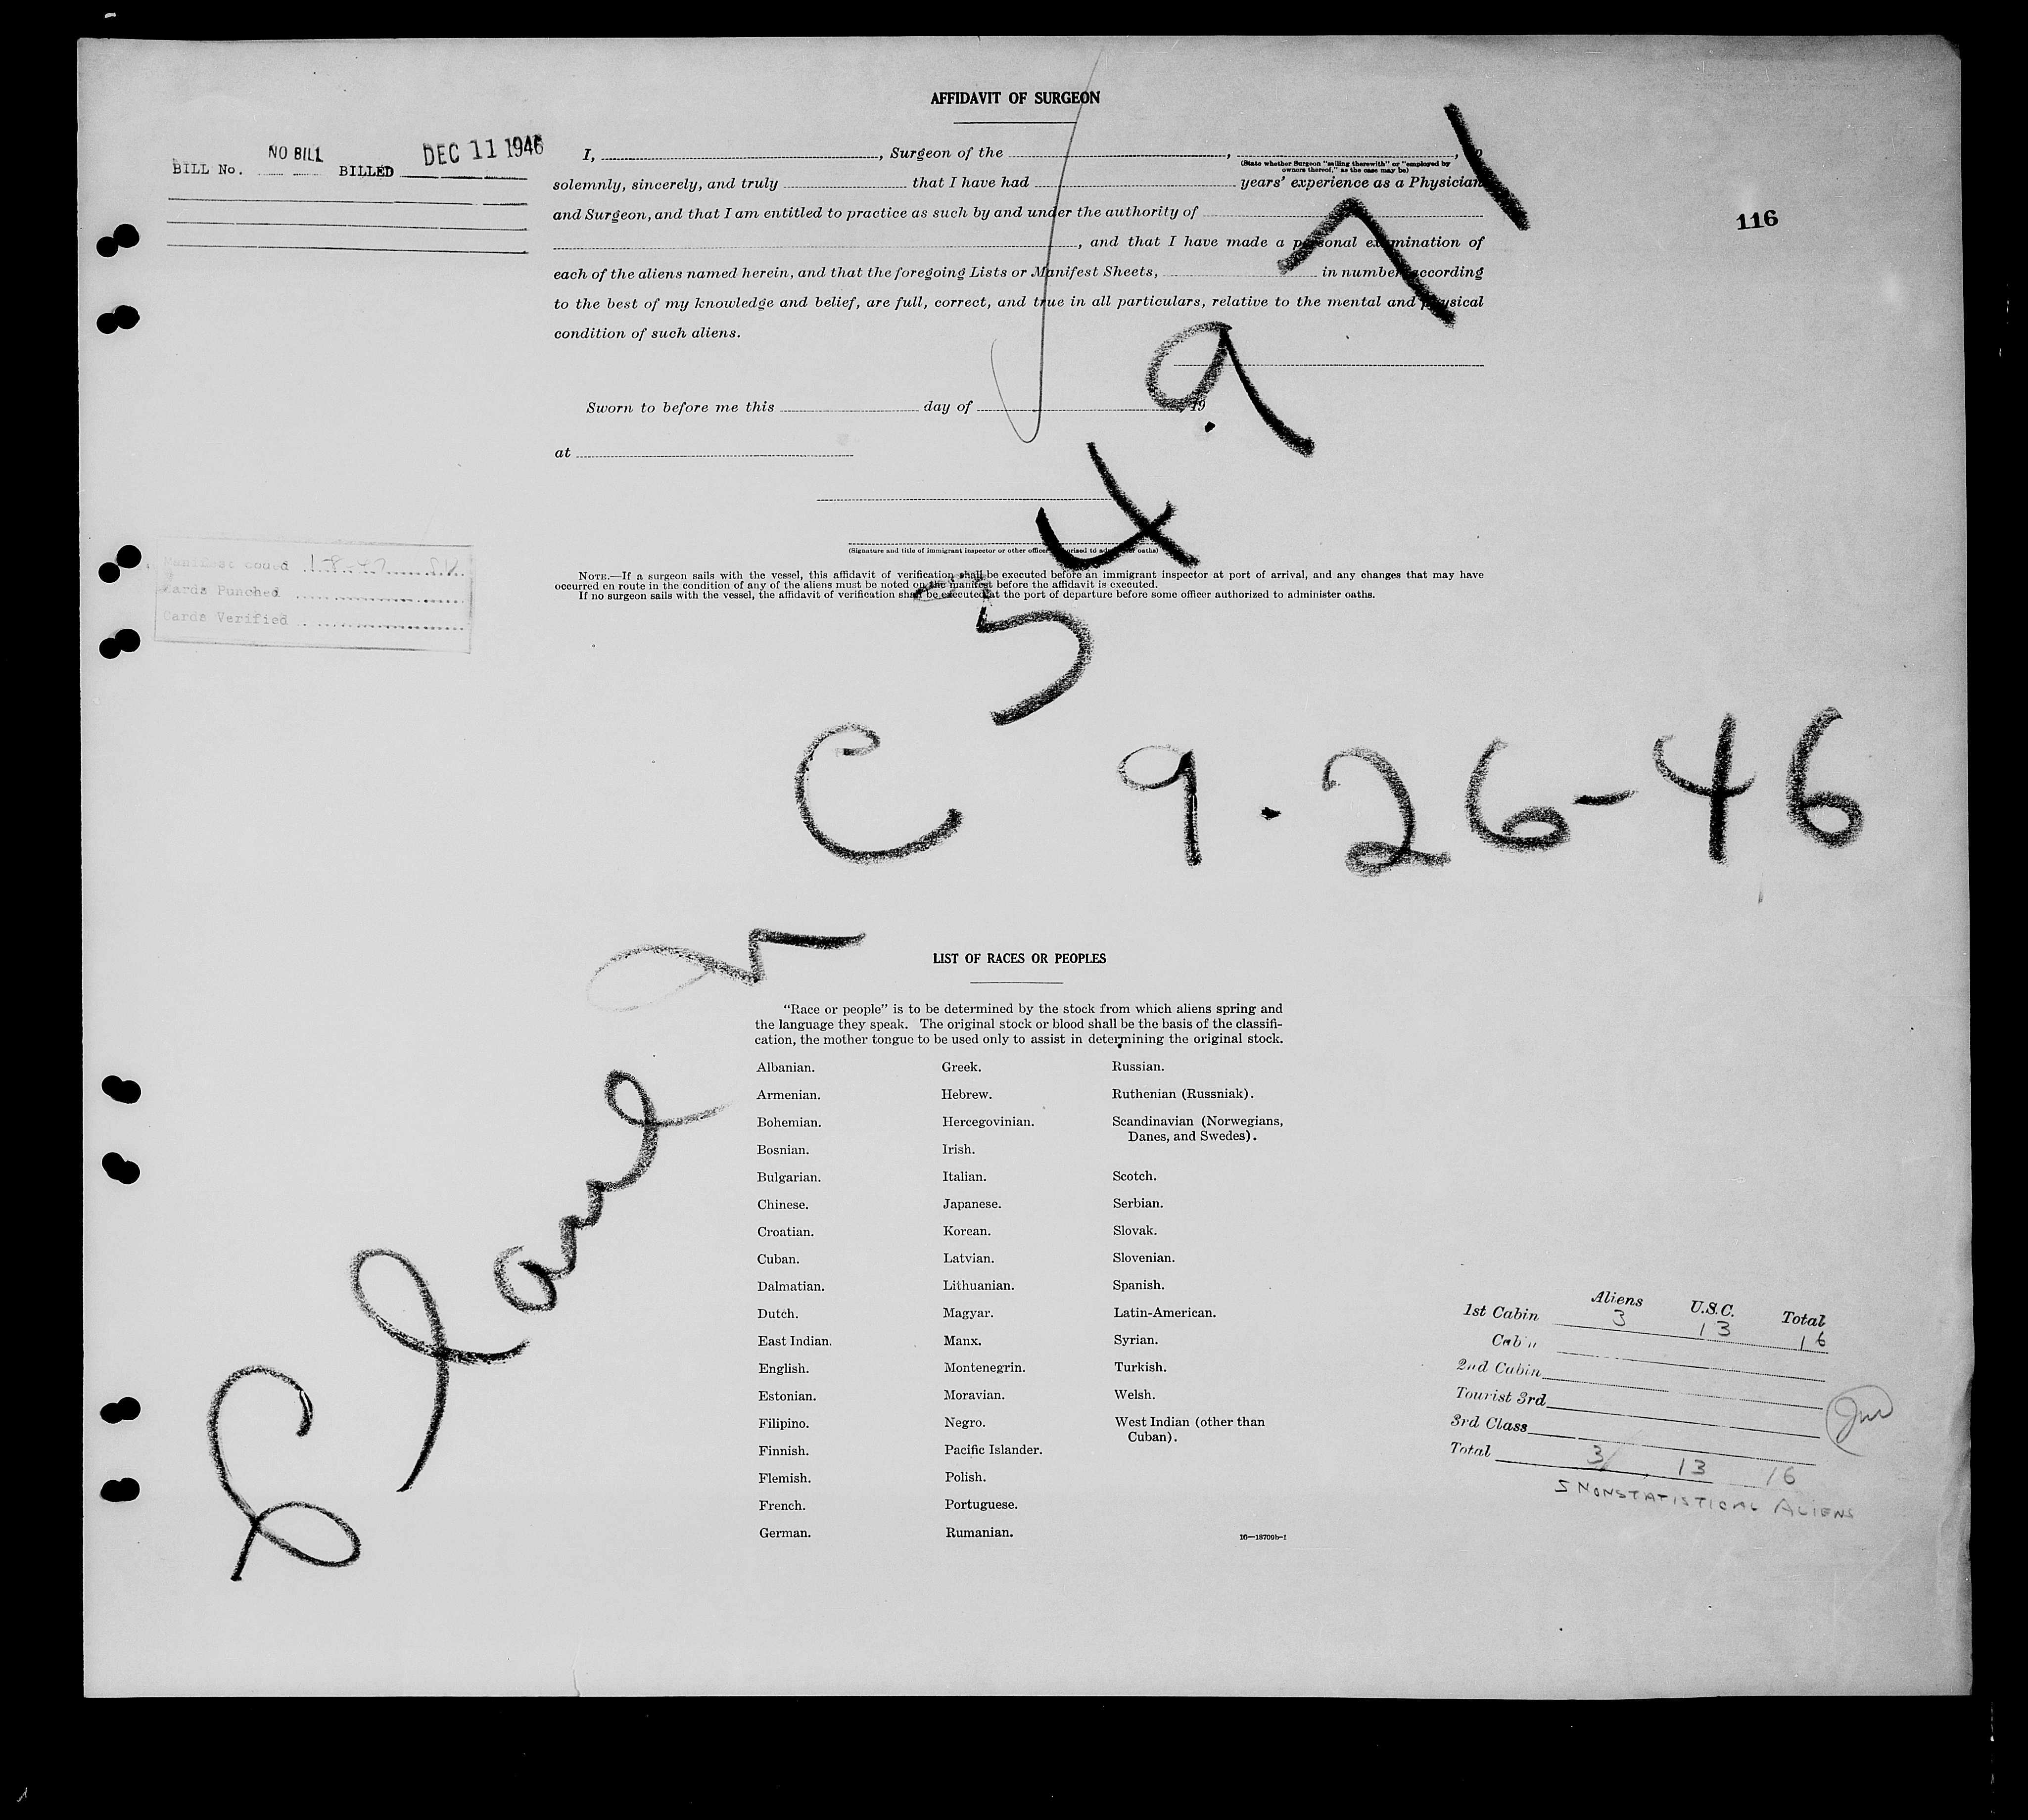 AFFIDAVIT OF SURGEON
BILL No. NO BILL BILLED DEC 11 1946
I, , Surgeon of the , ,
(State whether Surgeon "sailing therewith" or "employed by
owners thereof," as the case may be)
solemnly, sincerely, and truly that I have had years' experience as a Physician
and Surgeon, and that I am entitled to practice as such by and under the authority of
, and that I have made a personal examination of
each of the aliens named herein, and that the foregoing Lists or Manifest Sheets, in number, according
to the best of my knowledge and belief, are full, correct, and true in all particulars, relative to the mental and physical
condition of such aliens.
116
Sworn to before me this day of , 19
at
(Signature and title of immigrant inspector or other officer authorized to administer oaths)
NOTE.—If a surgeon sails with the vessel, this affidavit of verification shall be executed before an immigrant inspector at port of arrival, and any changes that may have
occurred en route in the condition of any of the aliens must be noted on the manifest before the affidavit is executed.
If no surgeon sails with the vessel, the affidavit of verification shall be executed at the port of departure before some officer authorized to administer oaths.
Manifest coded 1-8-47
Cards Punched
Cards Verified
C 54971
9-26-46
LIST OF RACES OR PEOPLES
"Race or people" is to be determined by the stock from which aliens spring and
the language they speak. The original stock or blood shall be the basis of the classifi-
cation, the mother tongue to be used only to assist in determining the original stock.
Albanian. Greek. Russian.
Armenian. Hebrew. Ruthenian (Russniak).
Bohemian. Hercegovinian. Scandinavian (Norwegians,
Danes, and Swedes).
Bosnian. Irish.
Bulgarian. Italian. Scotch.
Chinese. Japanese. Serbian.
Croatian. Korean. Slovak.
Cuban. Latvian. Slovenian.
Dalmatian. Lithuanian. Spanish.
Dutch. Magyar. Latin-American.
East Indian. Manx. Syrian.
English. Montenegrin. Turkish.
Estonian. Moravian. Welsh.
Filipino. Negro. West Indian (other than
Cuban).
Finnish. Pacific Islander.
Flemish. Polish.
French. Portuguese.
German. Rumanian.
16—18709b-1
Aliens U.S.C. Total
1st Cabin 3 13 16
Cabin
2nd Cabin
Tourist 3rd
3rd Class
Total 3 13 16
5 NONSTATISTICAL ALIENS